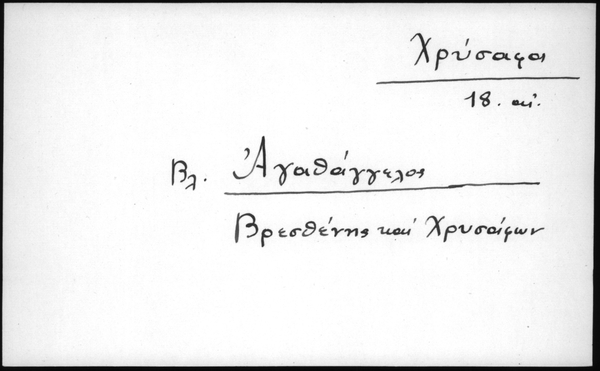 Χρύσαφα
18. αἰ.
Βλ. Ἀγαθάγγελος
Βρεσθένης καὶ Χρυσάφων